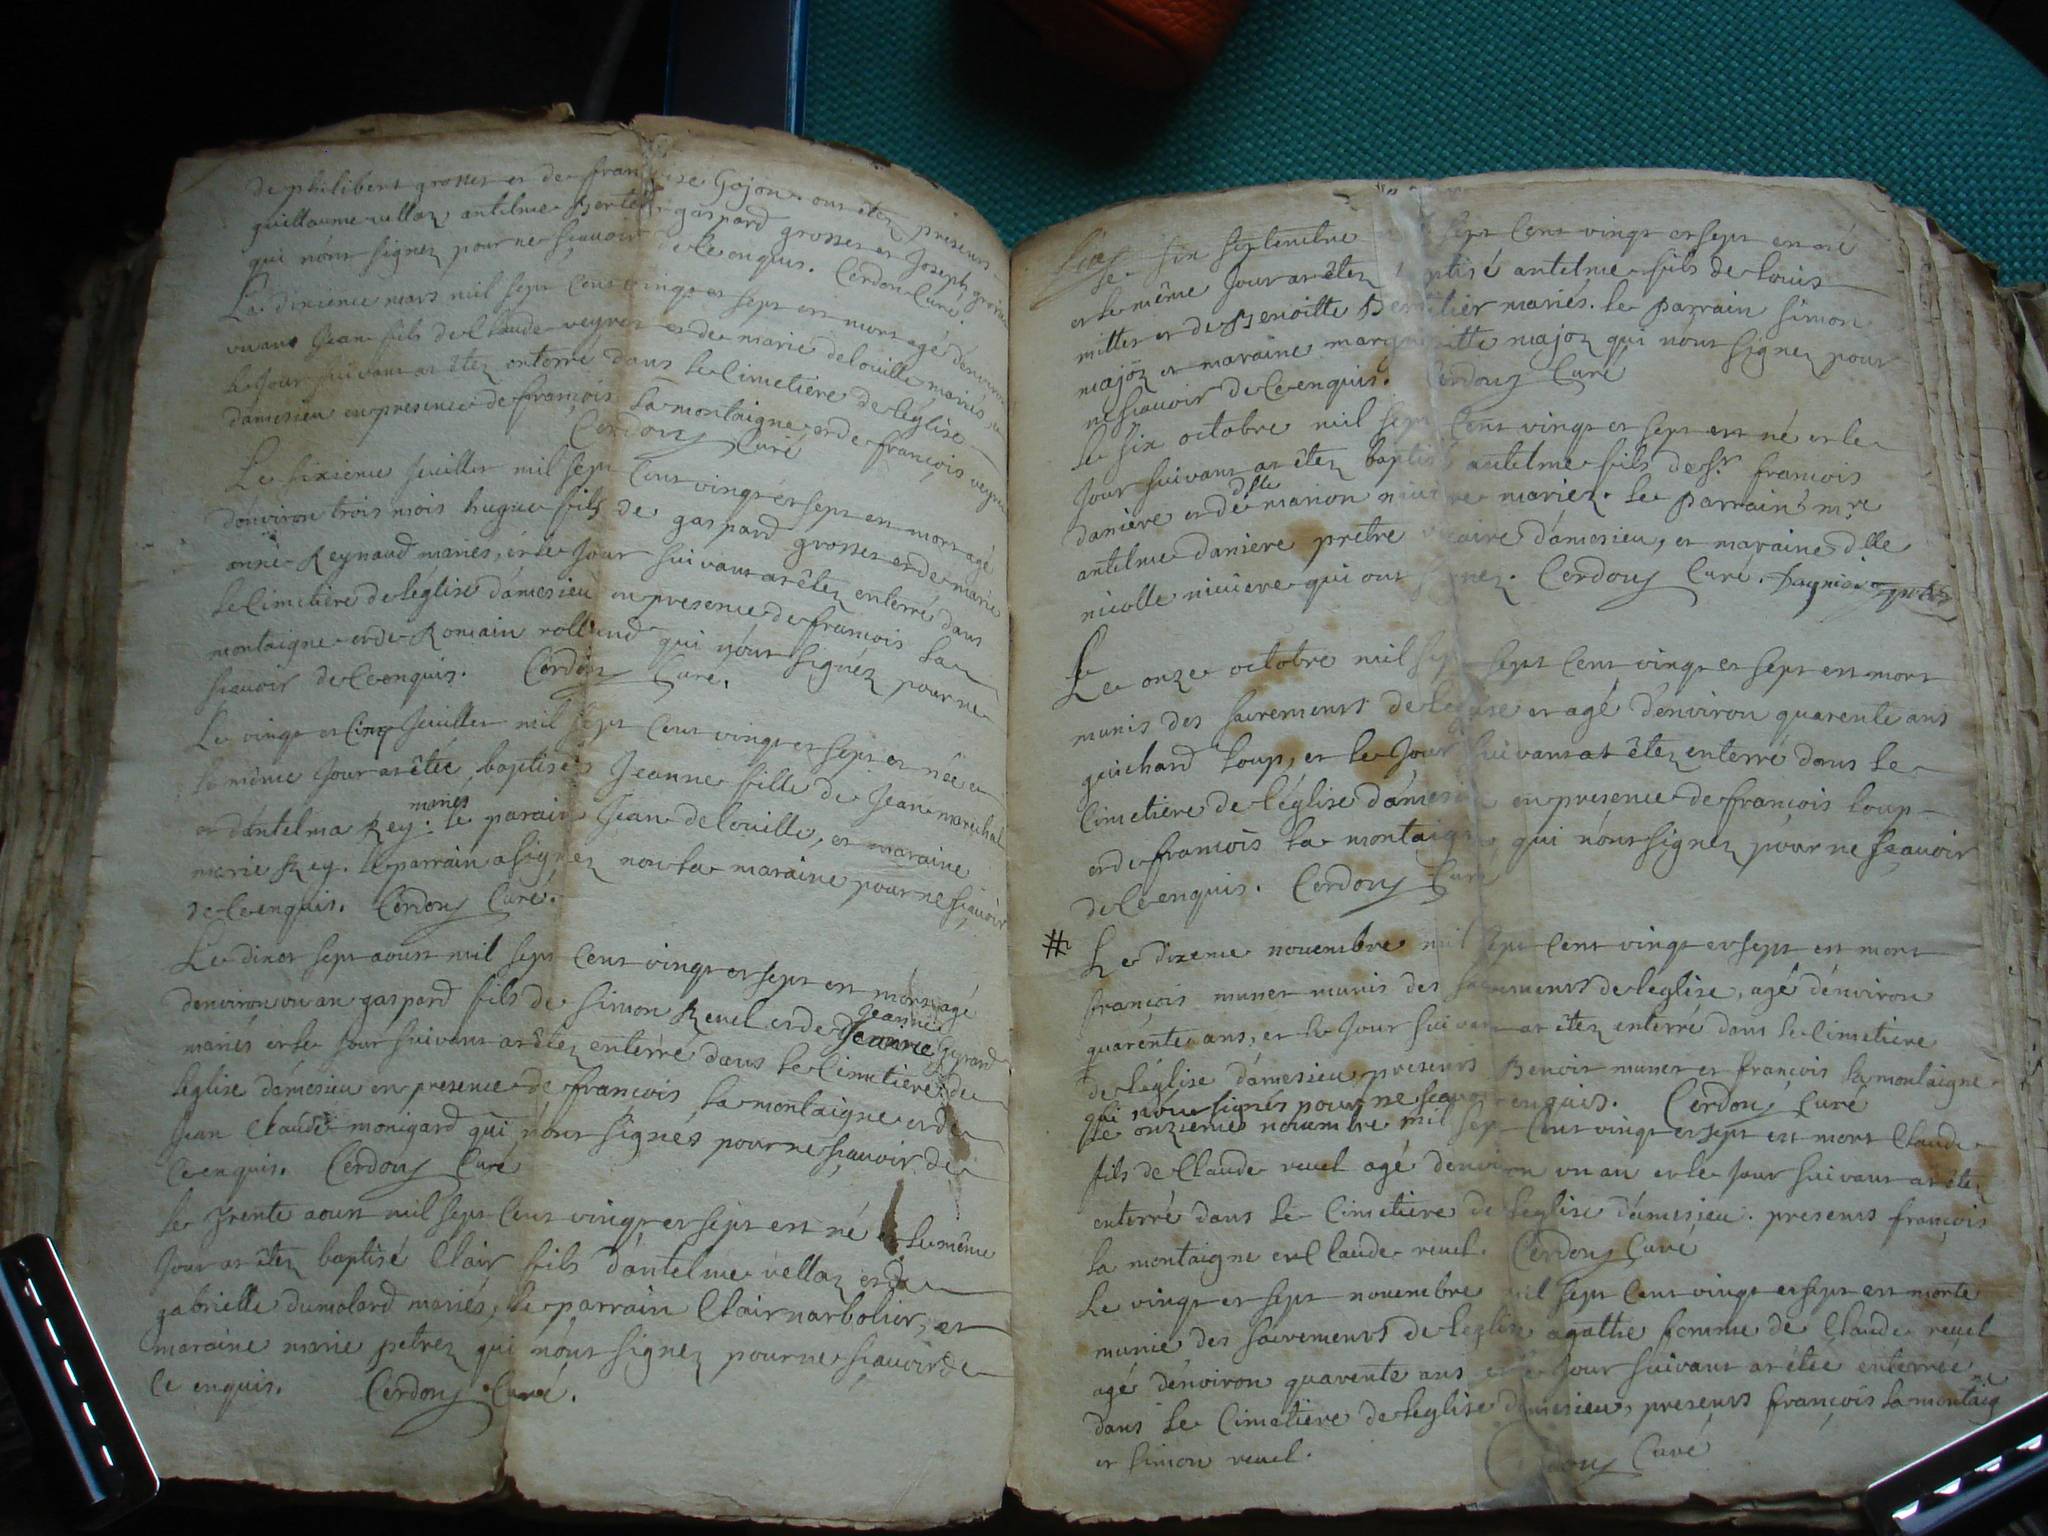 de philibert grosset et de francoise Gojon. ont étez presents
guillaume vellaz antelme gaspard grosset et Joseph
qui nónt signez pour ne scauoir de ce enquis. Cerdon Curé.
Le dixieme mars mil sept Cent vingt et sept est mort agé dénviron
vn ans Jean fils de Claude veyret et de marie delouille mariés, et
le Jour suivant at étez enterré dans le Cimetière de léglise
damesieu en presence de francois La montaigne et de françois veyret
Cerdony Curé
Le sixieme Juillet mil sept Cent vingt et sept est mort agé
dénviron trois mois hugue fils de gaspard grosset et de marie
anne Reynaud mariés, et le Jour suivant at êtez enterré dans
le Cimetière de léglise dámesieu en presence de francois La
montaigne et de Romain rolland qui nónt signéz pour ne
scauoir de Ce enquis. Cerdony Curé.
Le vingt et Cinq Juillet mil sept Cent vingt et sept est née et
le même Jour at êtée baptisée Jeanne fille de Jean marechal
mariés
et dántelma Rey. Le parain Jean delouille, et maraine
marie Rey. le parrain a signez non la maraine pour ne scauoir
de Ce enquis. Cerdony Curé.
Le dixet sept aoust mil sept Cent vingt et sept est mort agé
denviron vn an gaspard fils de simon Reuel et de Jeanne
Jeanne
mariés et le Jour suivant at êtez enterré dans le Cimetiere de
leglise dámesieu en presence de francois La montaigne et de
Jean Claude monigard qui nónt signés pour ne scauoir de
Ce enquis. Cerdony Curé
Le trente aoust mil sept Cent vingt et sept est né et le même
Jour at êtez baptisé Clair fils dántelme vellaz et de
gabrielle dumolard mariés, le parrain Clair narbolier, et
maraine marie petrez qui nónt signez pour ne scauoir de
Ce enquis. Cerdony Curé.
Le six septembre sept Cent vingt et sept est né
et le même Jour at êtez baptisé antelme fils de Louis
mittet et de Benoitte mariés. le parrain simon
majoz et maraine margueritte majoz qui nónt signez pour
ne scauoir de Ce enquis. Cerdony Curé
Le six octobre mil sept Cent vingt et sept est né et le
Jour suivant at êtez baptisé antelme fils de sr. francois
dlle
daniere et de marion mariez. le parrain mre
antelme daniere prêtre vicaire dámesieu, et maraine dlle
nicolle niuiere qui ont signez. Cerdony Curé.
Le onze octobre mil sept Cent vingt et sept est mort
munis des sacrements de leglise et agé dénviron quarente ans
guichard Loup, et le Jour suivant at êtez enterré dans le
Cimetiere de léglise dámesieu en presence de francois Loup
et de francois La montaigne qui nónt signez pour ne scauoir
de Ce enquis. Cerdony Curé
# Le dixeme nouembre mil sept Cent vingt et sept est mort
françois munet munis des sacrements de leglise, agé dénviron
quarénte ans, et le Jour suivant at êtez enterré dans le Cimetiere
de léglise dámesieu presents Benoit munet et francois La montaigne
qui nónt signés pour ne scauoir enquis. Cerdony Curé
Le onzieme nouembre mil sept Cent vingt et sept est mort Claude
fils de Claude reuel agé denviron vn an et le Jour suivant at êtez
enterré dans le Cimetiere de leglise dámesieu. presents françois
La montaigne et Claude reuel. Cerdony Curé
Le vingt et sept nouembre mil sept Cent vingt et sept est morte
munie des sacrements de leglise agathe femme de Claude reuel
agé dénviron quarente ans et le Jour suivant at êtée enterrée
dans le Cimetiere de leglise damesieu, presents françois La montaig
et simon reuel. Cerdony Curé